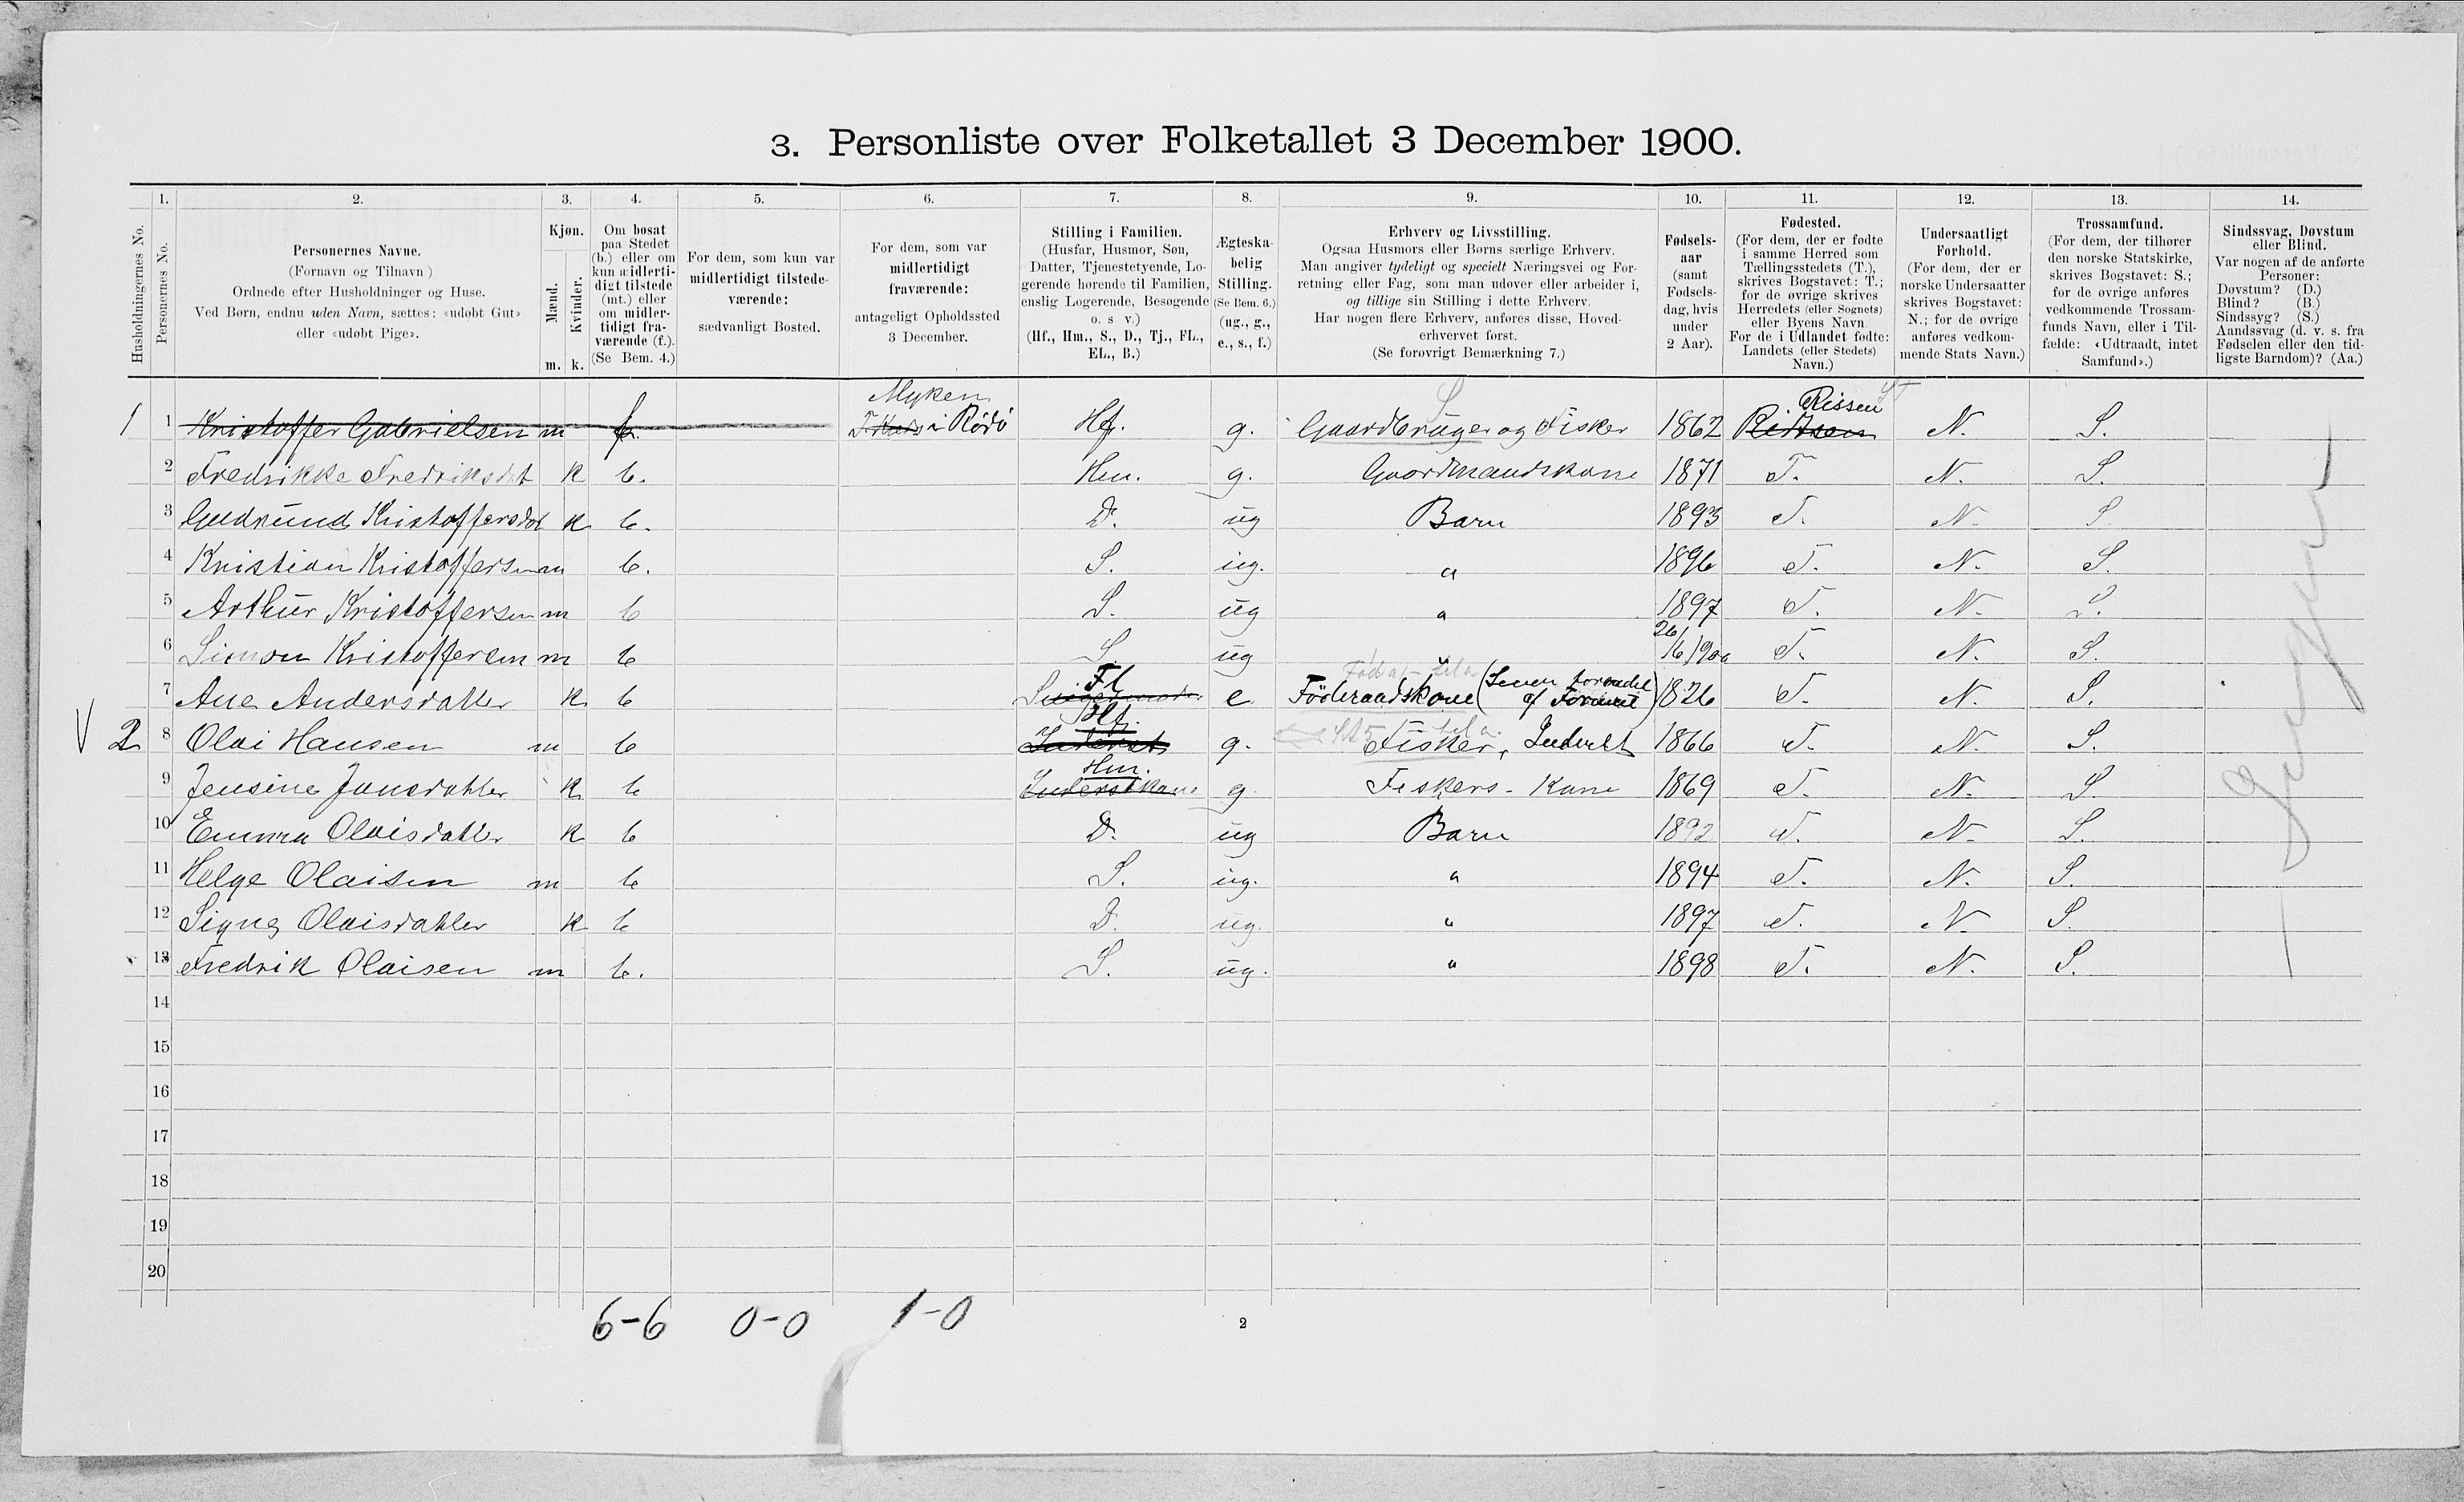 3. Personliste over Folketallet 3 December 1900.
1. 2. 3. 4. 5. 6. 7. 8. 9. 10. 11. 12. 13. 14.
Husholdningernes No.
Personernes No.
Personernes Navne.
(Fornavn og Tilnavn)
Ordnede efter Husholdninger og Huse.
Ved Børn, endnu uden Navn, sættes: «udøbt Gut»
eller «udøbt Pige».
Kjøn.
Mænd.
Kvinder.
m. k.
Om bosat
paa Stedet
(b.) eller om
kun midlerti-
digt tilstede
(mt.) eller
om midler-
tidigt fra-
værende (f.).
(Se Bem. 4.)
For dem, som kun var
midlertidigt tilstede-
værende:
sædvanligt Bosted.
For dem, som var
midlertidigt
fraværende:
antageligt Opholdssted
3 December.
Stilling i Familien.
(Husfar, Husmor, Søn,
Datter, Tjenestetyende, Lo-
gerende hørende til Familien,
enslig Logerende, Besøgende
o. s v.)
(Hf., Hm., S., D., Tj., FL.,
EL., B.)
Ægteska-
belig
Stilling.
(Se Bem. 6.)
(ug., g.,
e., s., f.)
Erhverv og Livsstilling.
Ogsaa Husmors eller Børns særlige Erhverv.
Man angiver tydeligt og specielt Næringsvei og For-
retning eller Fag, som man udøver eller arbeider i,
og tillige sin Stilling i dette Erhverv.
Har nogen flere Erhverv, anføres disse, Hoved-
erhvervet først.
(Se forøvrigt Bemærkning 7.)
Fødsels-
aar
(samt
Fødsels-
dag, hvis
under
2 Aar).
Fødested.
(For dem, der er fødte
i samme Herred som
Tællingsstedets (T.),
skrives Bogstavet: T.;
for de øvrige skrives
Herredets (eller Sognets)
eller Byens Navn
For de i Udlandet fødte:
Landets (eller Stedets)
Navn.)
Undersaatligt
Forhold.
(For dem, der er
norske Undersaatter
skrives Bogstavet:
N.; for de øvrige
anføres vedkom-
mende Stats Navn.)
Trossamfund.
(For dem, der tilhører
den norske Statskirke,
skrives Bogstavet: S.;
for de øvrige anføres
vedkommende Trossam-
funds Navn, eller i Til-
fælde: «Udtraadt, intet
Samfund».)
Sindssvag, Døvstum
eller Blind.
Var nogen af de anførte
Personer:
Døvstum? (D.)
Blind? (B.)
Sindssyg? (S.)
Aandssvag (d. v. s. fra
Fødselen eller den tid-
ligste Barndom)? (Aa.)
Myken Rissen
1 1 Kristoffer Gabrielsen m f. i Rödö Hf. g. Gaardbruger og Fisker 1862 N. S.
2 Fredrikke Fredriksdat k b. Hm. g. Gaardmandskone 1871 T. N. S.
3 Gudrund Kristoffersdat k b. D. ug Barn 1893 T. N. S.
4 Kristian Kristoffersen m b. S. ug. " 1896 T. N. S.
5 Arthur Kristoffersen m b S. ug " 1897 T. N. S.
6 Simon Kristoffersen m b S. ug " 26/6 1900 T. N. S.
Fl
7 Ane Andersdatter k b e Föderaadskone (Lever af Formue) 1826 T. N. S.
Hf.
V 2 8 Olai Hansen m b Inderst g. Fisker, Inderst 1866 T. N. S.
Hm.
9 Jensine Jansdatter k b Inderstkone g. Fiskers-Kone 1869 T. N. S.
10 Emma Olaisdatter k b D. ug Barn 1892 T. N. S.
11 Helge Olaisen m b S. ug. " 1894 T. N. S.
12 Signe Olaisdatter k b D. ug. " 1897 T. N. S.
13 Fredrik Olaisen m b. S. ug. " 1898 T. N. S.
Ingen
14
15
16
17
18
19
20
6-6 0-0 1-0
2